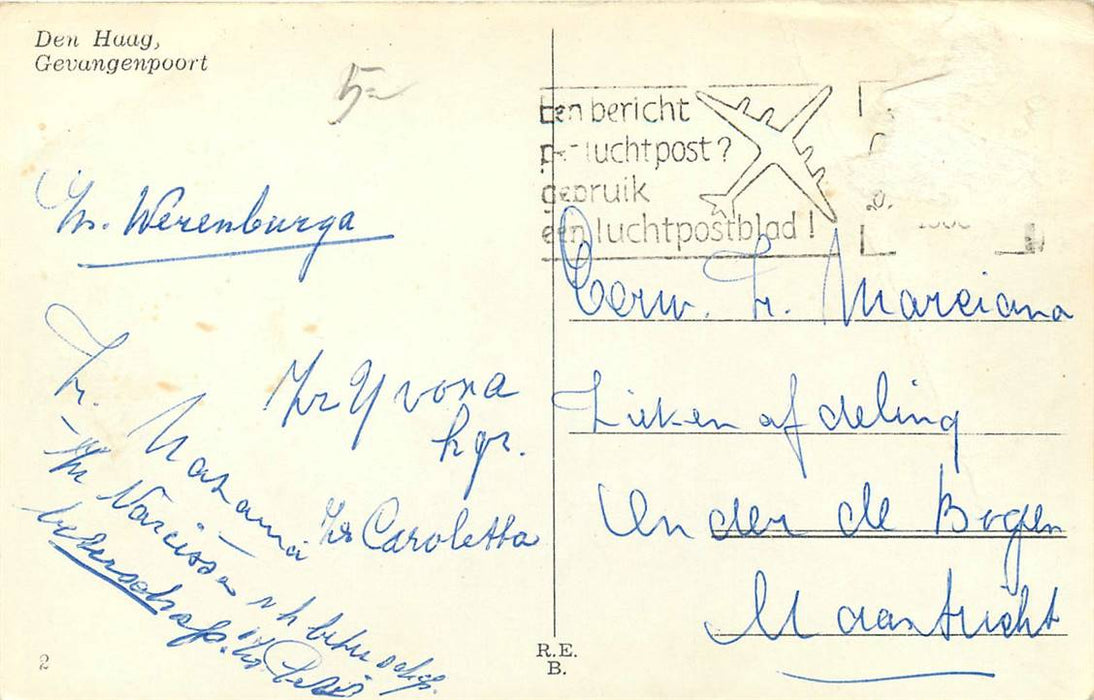 Den Haag,
Gevangenpoort
5=
Een bericht
per luchtpost?
gebruik
een luchtpostblad!
Zr. Werenburga
Eerw. Zr. Marciana
Zr Yvona
hgr.
Zieken afdeling
Zr.
Zr Narcissa
beterschap.
Zr Caroletta
Onder de Bogen
Maastricht
R.E.
B.
2